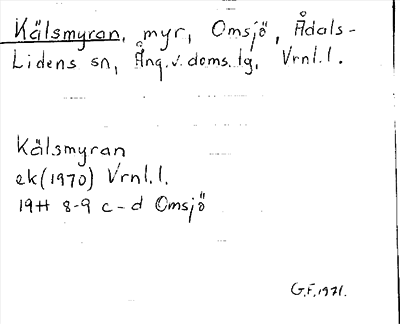 Kälsmyran, myr, Omsjö, Ådals-
Lidens sn, Ång.v.doms.lg, Vrnl.l.
Kälsmyran
ek(1970) Vrnl.l.
19H 8-9 c-d Omsjö
G.F.1971.